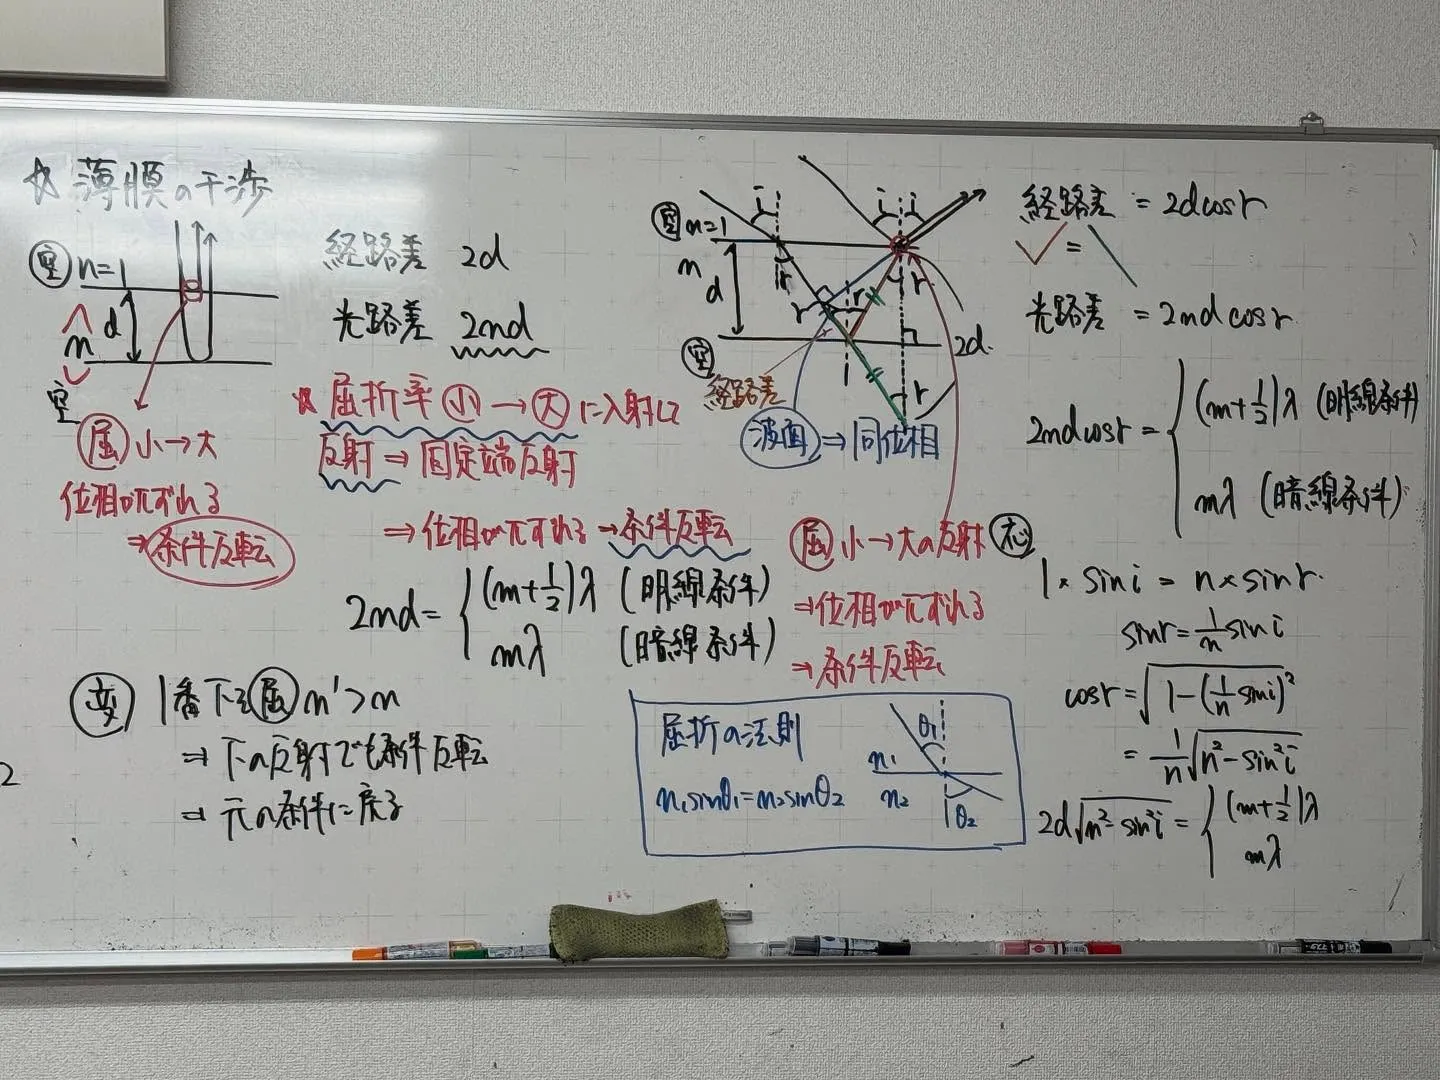 ☆ 薄膜の干渉
空 n=1
d
n
空
経路差 2d
光路差 2nd
屈 小→大
位相がπずれる
⇒条件反転
☆ 屈折率 小 → 大 に入射して
反射 ⇒ 固定端反射
⇒ 位相がπずれる → 条件反転
2nd = { (m+1/2)λ (明線条件)
mλ (暗線条件)
変 1番下を屈 n'>n
⇒ 下の反射でも条件反転
⇒ 元の条件に戻る
2
空 n=1
n
d
空
i i i
r r r r r
2d
経路差
波面 ⇒ 同位相
屈 小→大の反射
⇒位相がπずれる
→ 条件反転
屈折の法則
n₁sinθ₁=n₂sinθ₂
n₁ θ₁
n₂ θ₂
経路差 = 2dcosr
=
光路差 = 2ndcosr
2ndcosr = { (m+1/2)λ (明線条件)
mλ (暗線条件)
1 × sini = n × sinr
sinr = 1/n sini
cosr = √(1-(1/n sini)²)
= 1/n √(n²-sin²i)
2d√(n²-sin²i) = { (m+1/2)λ
mλ